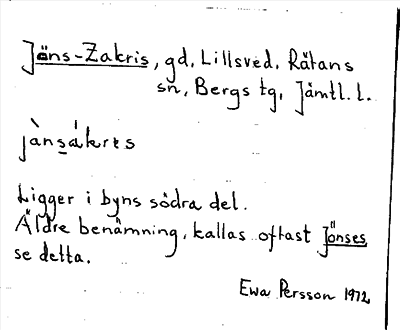 Jöns-Zakris, gd, Lillsved, Rätans
sn, Bergs tg, Jämtl. l.
jànsákrɩs
Ligger i byns södra del.
Äldre benämning, kallas oftast Jönses
se detta.
Ewa Persson 1972